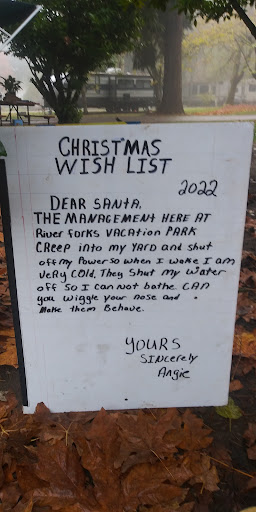 CHRISTMAS
WISH LIST
2022
DEAR SANTA.
THE MANAGEMENT HERE AT
River forks VACATION PARK
CREEP into my YARD and shut
off my Power so when I wake I am
very COLD. They Shut my Water
off so I can not bathe CAN
you wiggle your nose and
Make them Behave.
YOURS
SINcerely
Angie